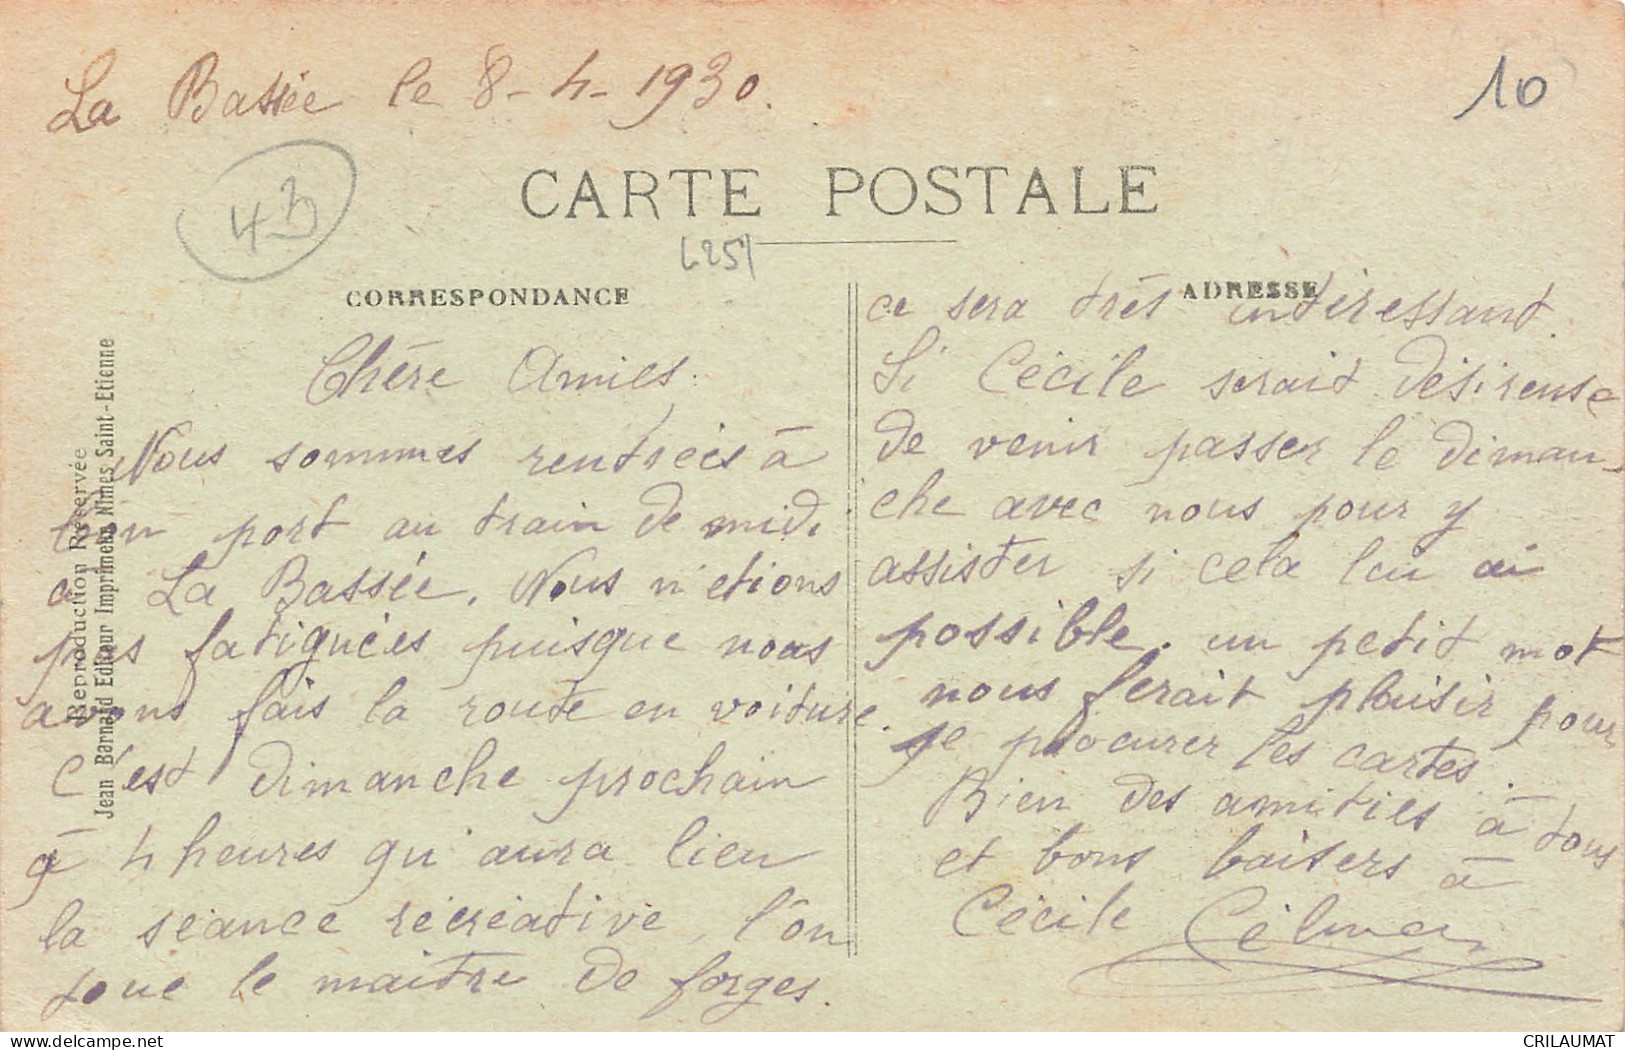 La Bassée le 8-4-1930.
10
43
CARTE POSTALE
(25)
CORRESPONDANCE
ADRESSE
Reproduction Réservée
Jean Barnard Editeur Imprimeur Nîmes Saint-Etienne
Chère Amies,
Nous sommes rentrées à
bon port au train de midi
a La Bassée. Nous n'etions
pas fatiguées puisque nous
avons fais la route en voiture.
C'est dimanche prochain
à 4 heures qu'aura lieu
la séance récréative, l'on
joue le maitre de forges.
ce sera très intéressant.
Si Cécile serait désireuse
de venir passer le diman-
che avec nous pour y
assister si cela lui
possible. un petit mot
nous ferait plaisir pour
procurer les cartes.
Bien des amitiés à tous
et bons baisers à
Cécile
delcampe.net
CRILAUMAT